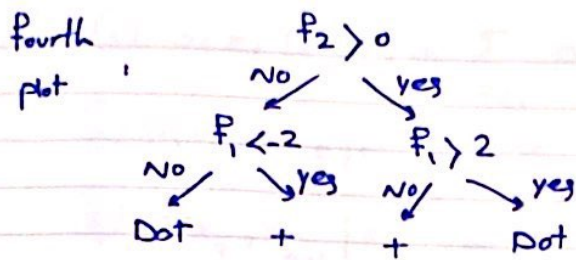 fourth
plot
f₂ > 0
No yes
f₁ < -2 f₁ > 2
No yes No yes
Dot + + Dot